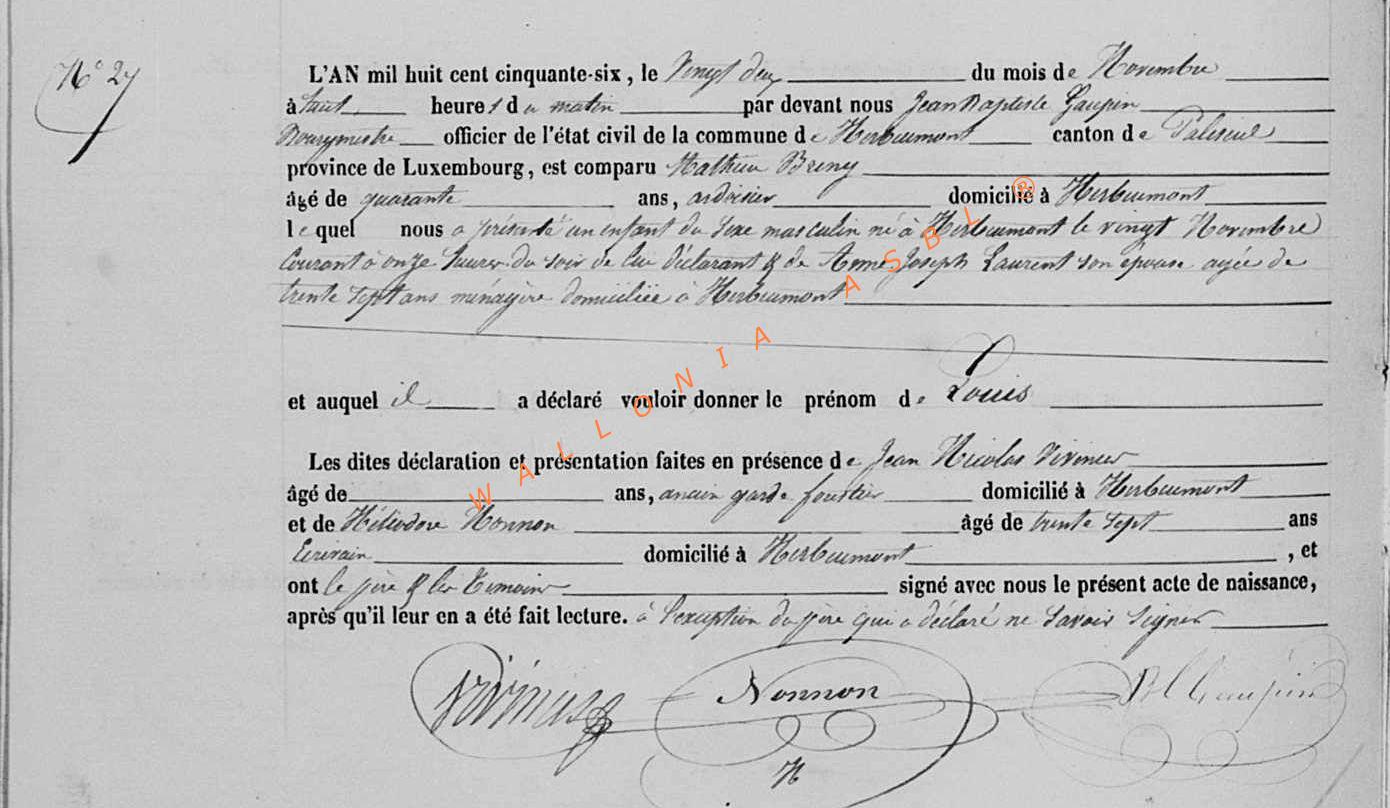 N° 27
L'AN mil huit cent cinquante-six, le Vingt deux du mois de Novembre
à huit heures du matin par devant nous Jean Baptiste Gaupin
Bourgmestre officier de l'état civil de la commune de Herbeumont canton de Paliseul
province de Luxembourg, est comparu Mathieu
âgé de quarante ans, ardoisier domicilié à Herbeumont
lequel nous a présenté un enfant du sexe masculin né à Herbeumont le vingt Novembre
Courant à onze heures du soir de lui déclarant & de Anne Joseph Laurent son épouse agée de
trente sept ans ménagère domiciliée à Herbeumont
et auquel il a déclaré vouloir donner le prénom de Louis
Les dites déclaration et présentation faites en présence de Jean Nicolas
âgé de ans, ancien garde forestier domicilié à Herbeumont
et de Héliodore Nonnon âgé de trente sept ans
Ecrivain domicilié à Herbeumont, et
ont le père & les témoins signé avec nous le présent acte de naissance,
après qu'il leur en a été fait lecture. à l'exception du père qui a déclaré ne savoir signer
Nonnon
WALLONIA ASBL ®